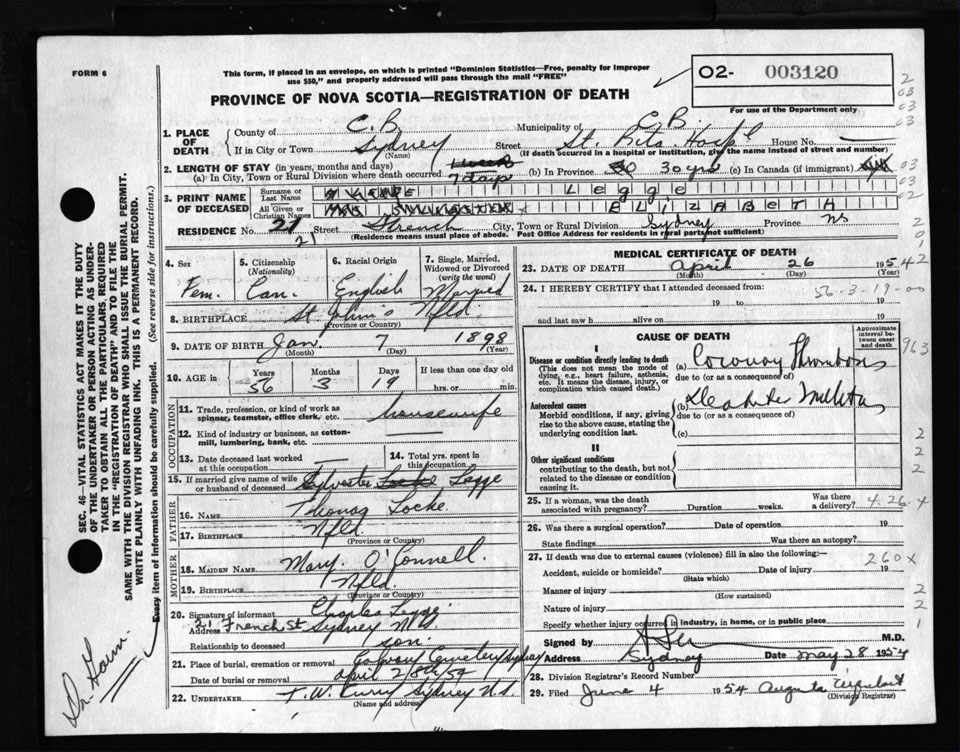 FORM 6
This form, if placed in an envelope, on which is printed "Dominion Statistics—Free, penalty for improper
use $50," and properly addressed will pass through the mail "FREE"
02- 003120
For use of the Department only
PROVINCE OF NOVA SCOTIA—REGISTRATION OF DEATH
1. PLACE OF DEATH
County of C. B. Municipality of C. B.
If in City or Town Sydney Street St. Rita Hosp'l House No.
(Name) (If death occurred in a hospital or institution, give the name instead of street and number)
2. LENGTH OF STAY (in years, months and days)
(a) In City, Town or Rural Division where death occurred 7 days (b) In Province 30 yrs (c) In Canada (if immigrant)
3. PRINT NAME OF DECEASED
Surname or Last Name Legge
All Given or Christian Names ELIZABETH
RESIDENCE No. 21 Street French City, Town or Rural Division Sydney Province NS
21
(Residence means usual place of abode. Post Office Address for residents in rural parts not sufficient)
4. Sex
Fem.
5. Citizenship
(Nationality)
Can.
6. Racial Origin
English
7. Single, Married,
Widowed or Divorced
(write the word)
Married
8. BIRTHPLACE St. John's Nfld.
(Province or Country)
9. DATE OF BIRTH Jan. 7 1898
(Month) (Day) (Year)
10. AGE in Years Months Days If less than one day old
56 3 19 hrs. or min.
OCCUPATION
11. Trade, profession, or kind of work as
spinner, teamster, office clerk, etc. housewife
12. Kind of industry or business, as cotton-
mill, lumbering, bank, etc.
13. Date deceased last worked
at this occupation
14. Total yrs. spent in
this occupation
15. If married give name of wife
or husband of deceased Sylvester Legge
FATHER
16. NAME Thomas Locke.
17. BIRTHPLACE Nfld.
(Province or Country)
MOTHER
18. MAIDEN NAME Mary O'Connell.
19. BIRTHPLACE Nfld.
(Province or Country)
20. Signature of informant Charles Legge
Address 21 French St. Sydney N.S.
Relationship to deceased son.
21. Place of burial, cremation or removal Calvary Cemetery Sydney
Date of burial or removal april 28th/54
22. UNDERTAKER T. W. Curry Sydney N.S.
(Name and address)
MEDICAL CERTIFICATE OF DEATH
23. DATE OF DEATH April 26 1954
(Month) (Day) (Year)
24. I HEREBY CERTIFY that I attended deceased from:
56-3-19-00
19 to 19
and last saw h alive on 19
CAUSE OF DEATH
Approximate
interval be-
tween onset
and death
I
Disease or condition directly leading to death
(This does not mean the mode of
dying, e.g., heart failure, asthenia,
etc. It means the disease, injury, or
complication which caused death.)
(a) Coronary Thrombosis
due to (or as a consequence of)
Antecedent causes
Morbid conditions, if any, giving
rise to the above cause, stating the
underlying condition last.
(b) Diabetes Mellitus
due to (or as a consequence of)
(c)
II
Other significant conditions
contributing to the death, but not
related to the disease or condition
causing it.
25. If a woman, was the death
associated with pregnancy? Duration weeks. Was there
a delivery?
4.26.4
26. Was there a surgical operation? Date of operation 19
State findings Was there an autopsy?
27. If death was due to external causes (violence) fill in also the following:—
260x
Accident, suicide or homicide? Date of injury 19
(State which)
Manner of injury
(How sustained)
Nature of injury
Specify whether injury occurred in industry, in home, or in public place
Signed by M.D.
Address Sydney Date May 28 1954
28. Division Registrar's Record Number
29. Filed June 4 1954 Augusta
(Division Registrar)
SEC. 46—VITAL STATISTICS ACT MAKES IT THE DUTY
OF THE UNDERTAKER OR PERSON ACTING AS UNDER-
TAKER TO OBTAIN ALL THE PARTICULARS REQUIRED
IN THE "REGISTRATION OF DEATH" AND TO FILE THE
SAME WITH THE DIVISION REGISTRAR WHO SHALL ISSUE THE BURIAL PERMIT.
WRITE PLAINLY WITH UNFADING INK. THIS IS A PERMANENT RECORD.
Every item of information should be carefully supplied. (See reverse side for instructions.)